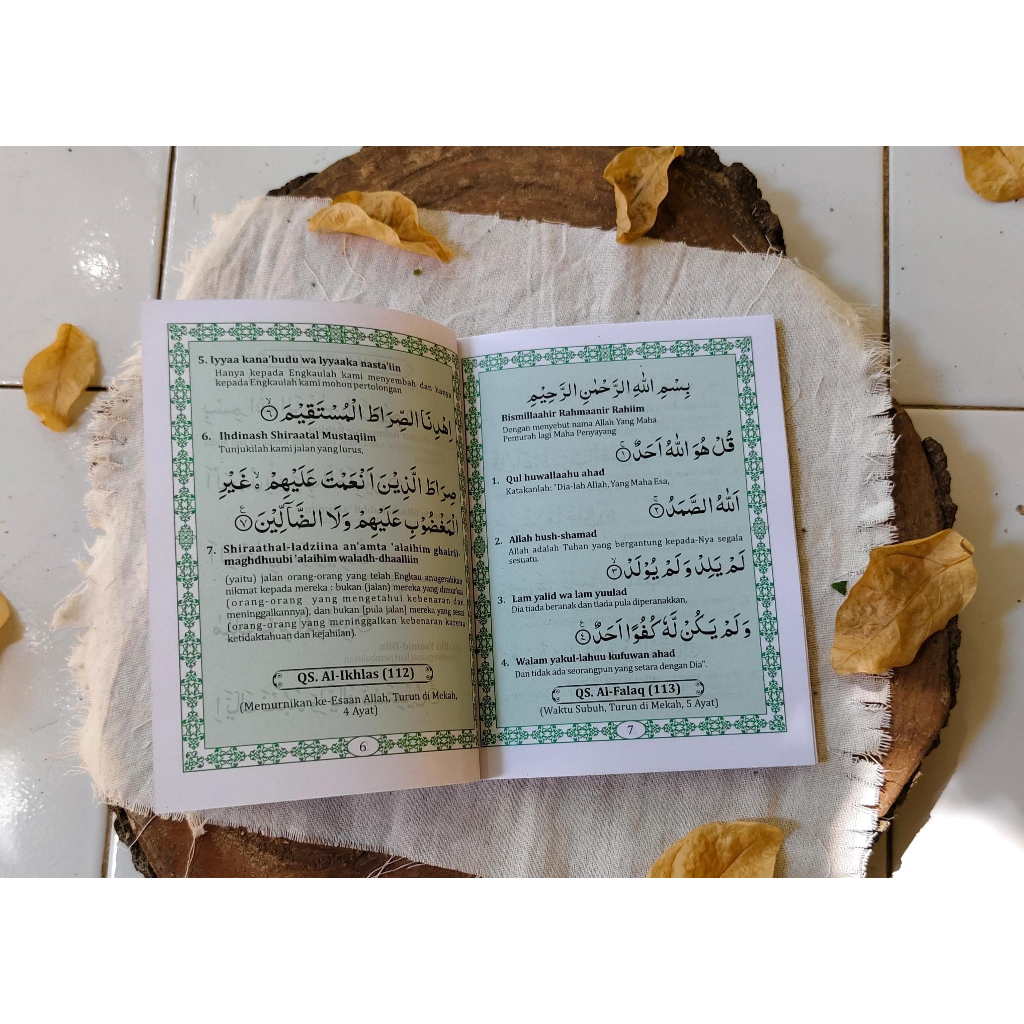 5. Iyyaa kana'budu wa iyyaaka nasta'iin
Hanya kepada Engkaulah kami menyembah dan hanya
kepada Engkaulah kami mohon pertolongan
اِهْدِنَا الصِّرَاطَ الْمُسْتَقِيْمَ ۙ ٦
6. Ihdinash Shiraatal Mustaqiim
Tunjukilah kami jalan yang lurus,
صِرَاطَ الَّذِيْنَ اَنْعَمْتَ عَلَيْهِمْ ەۙ غَيْرِ
الْمَغْضُوْبِ عَلَيْهِمْ وَلَا الضَّاۤلِّيْنَ ࣖ ٧
7. Shiraathal-ladziina an'amta 'alaihim ghairil-
maghdhuubi 'alaihim waladh-dhaalliin
(yaitu) jalan orang-orang yang telah Engkau anugerahkan
nikmat kepada mereka : bukan (jalan) mereka yang dimurkai
(orang-orang yang mengetahui kebenaran dan
meninggalkannya), dan bukan (pula jalan) mereka yang sesat
(orang-orang yang meninggalkan kebenaran karena
ketidaktahuan dan kejahilan).
QS. Al-Ikhlas (112)
(Memurnikan ke-Esaan Allah, Turun di Mekah,
4 Ayat)
6
بِسْمِ اللّٰهِ الرَّحْمٰنِ الرَّحِيْمِ
Bismillaahir Rahmaanir Rahiim
Dengan menyebut nama Allah Yang Maha
Pemurah lagi Maha Penyayang
قُلْ هُوَ اللّٰهُ اَحَدٌ ۚ ١
1. Qul huwallaahu ahad
Katakanlah: "Dia-lah Allah, Yang Maha Esa,
اَللّٰهُ الصَّمَدُ ۚ ٢
2. Allah hush-shamad
Allah adalah Tuhan yang bergantung kepada-Nya segala
sesuatu.
لَمْ يَلِدْ وَلَمْ يُوْلَدْ ۙ ٣
3. Lam yalid wa lam yuulad
Dia tiada beranak dan tiada pula diperanakkan,
وَلَمْ يَكُنْ لَّهٗ كُفُوًا اَحَدٌ ࣖ ٤
4. Walam yakul-lahuu kufuwan ahad
Dan tidak ada seorangpun yang setara dengan Dia".
QS. Al-Falaq (113)
(Waktu Subuh, Turun di Mekah, 5 Ayat)
7